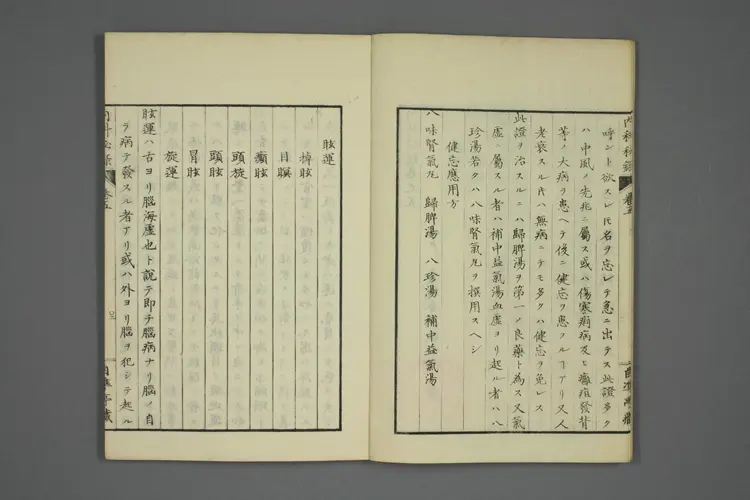 内科秘録 巻五
呼ント欲スレ𪜈名ヲ忘レテ急ニ出テス此證多ク
ハ中風ノ先兆ニ屬ス或ハ傷寒痢病及ヒ癰疽發背
等ノ大病ヲ患ヘテ後ニ健忘ヲ患フルヿアリ又人
老衰スル𪜈ハ無病ニテモ多クハ健忘ヲ免レス
此證ヲ治スルニハ歸脾湯ヲ第一ノ良藥ト為ス又氣
虚ニ屬スル者ハ補中益氣湯血虚ヨリ起ル者ハ八
珍湯若クハ八味腎氣丸ヲ撰用スヘシ
健忘應用方
八味腎氣丸 歸脾湯 八珍湯 補中益氣湯
眩運
掉眩
目瞑
癲眩
頭旋
頭眩
冒眩
旋運
眩運ハ古ヨリ腦海虚也ト說テ即チ腦病ナリ腦ノ自
ラ病テ發スル者アリ或ハ外ヨリ腦ヲ犯シテ起ル